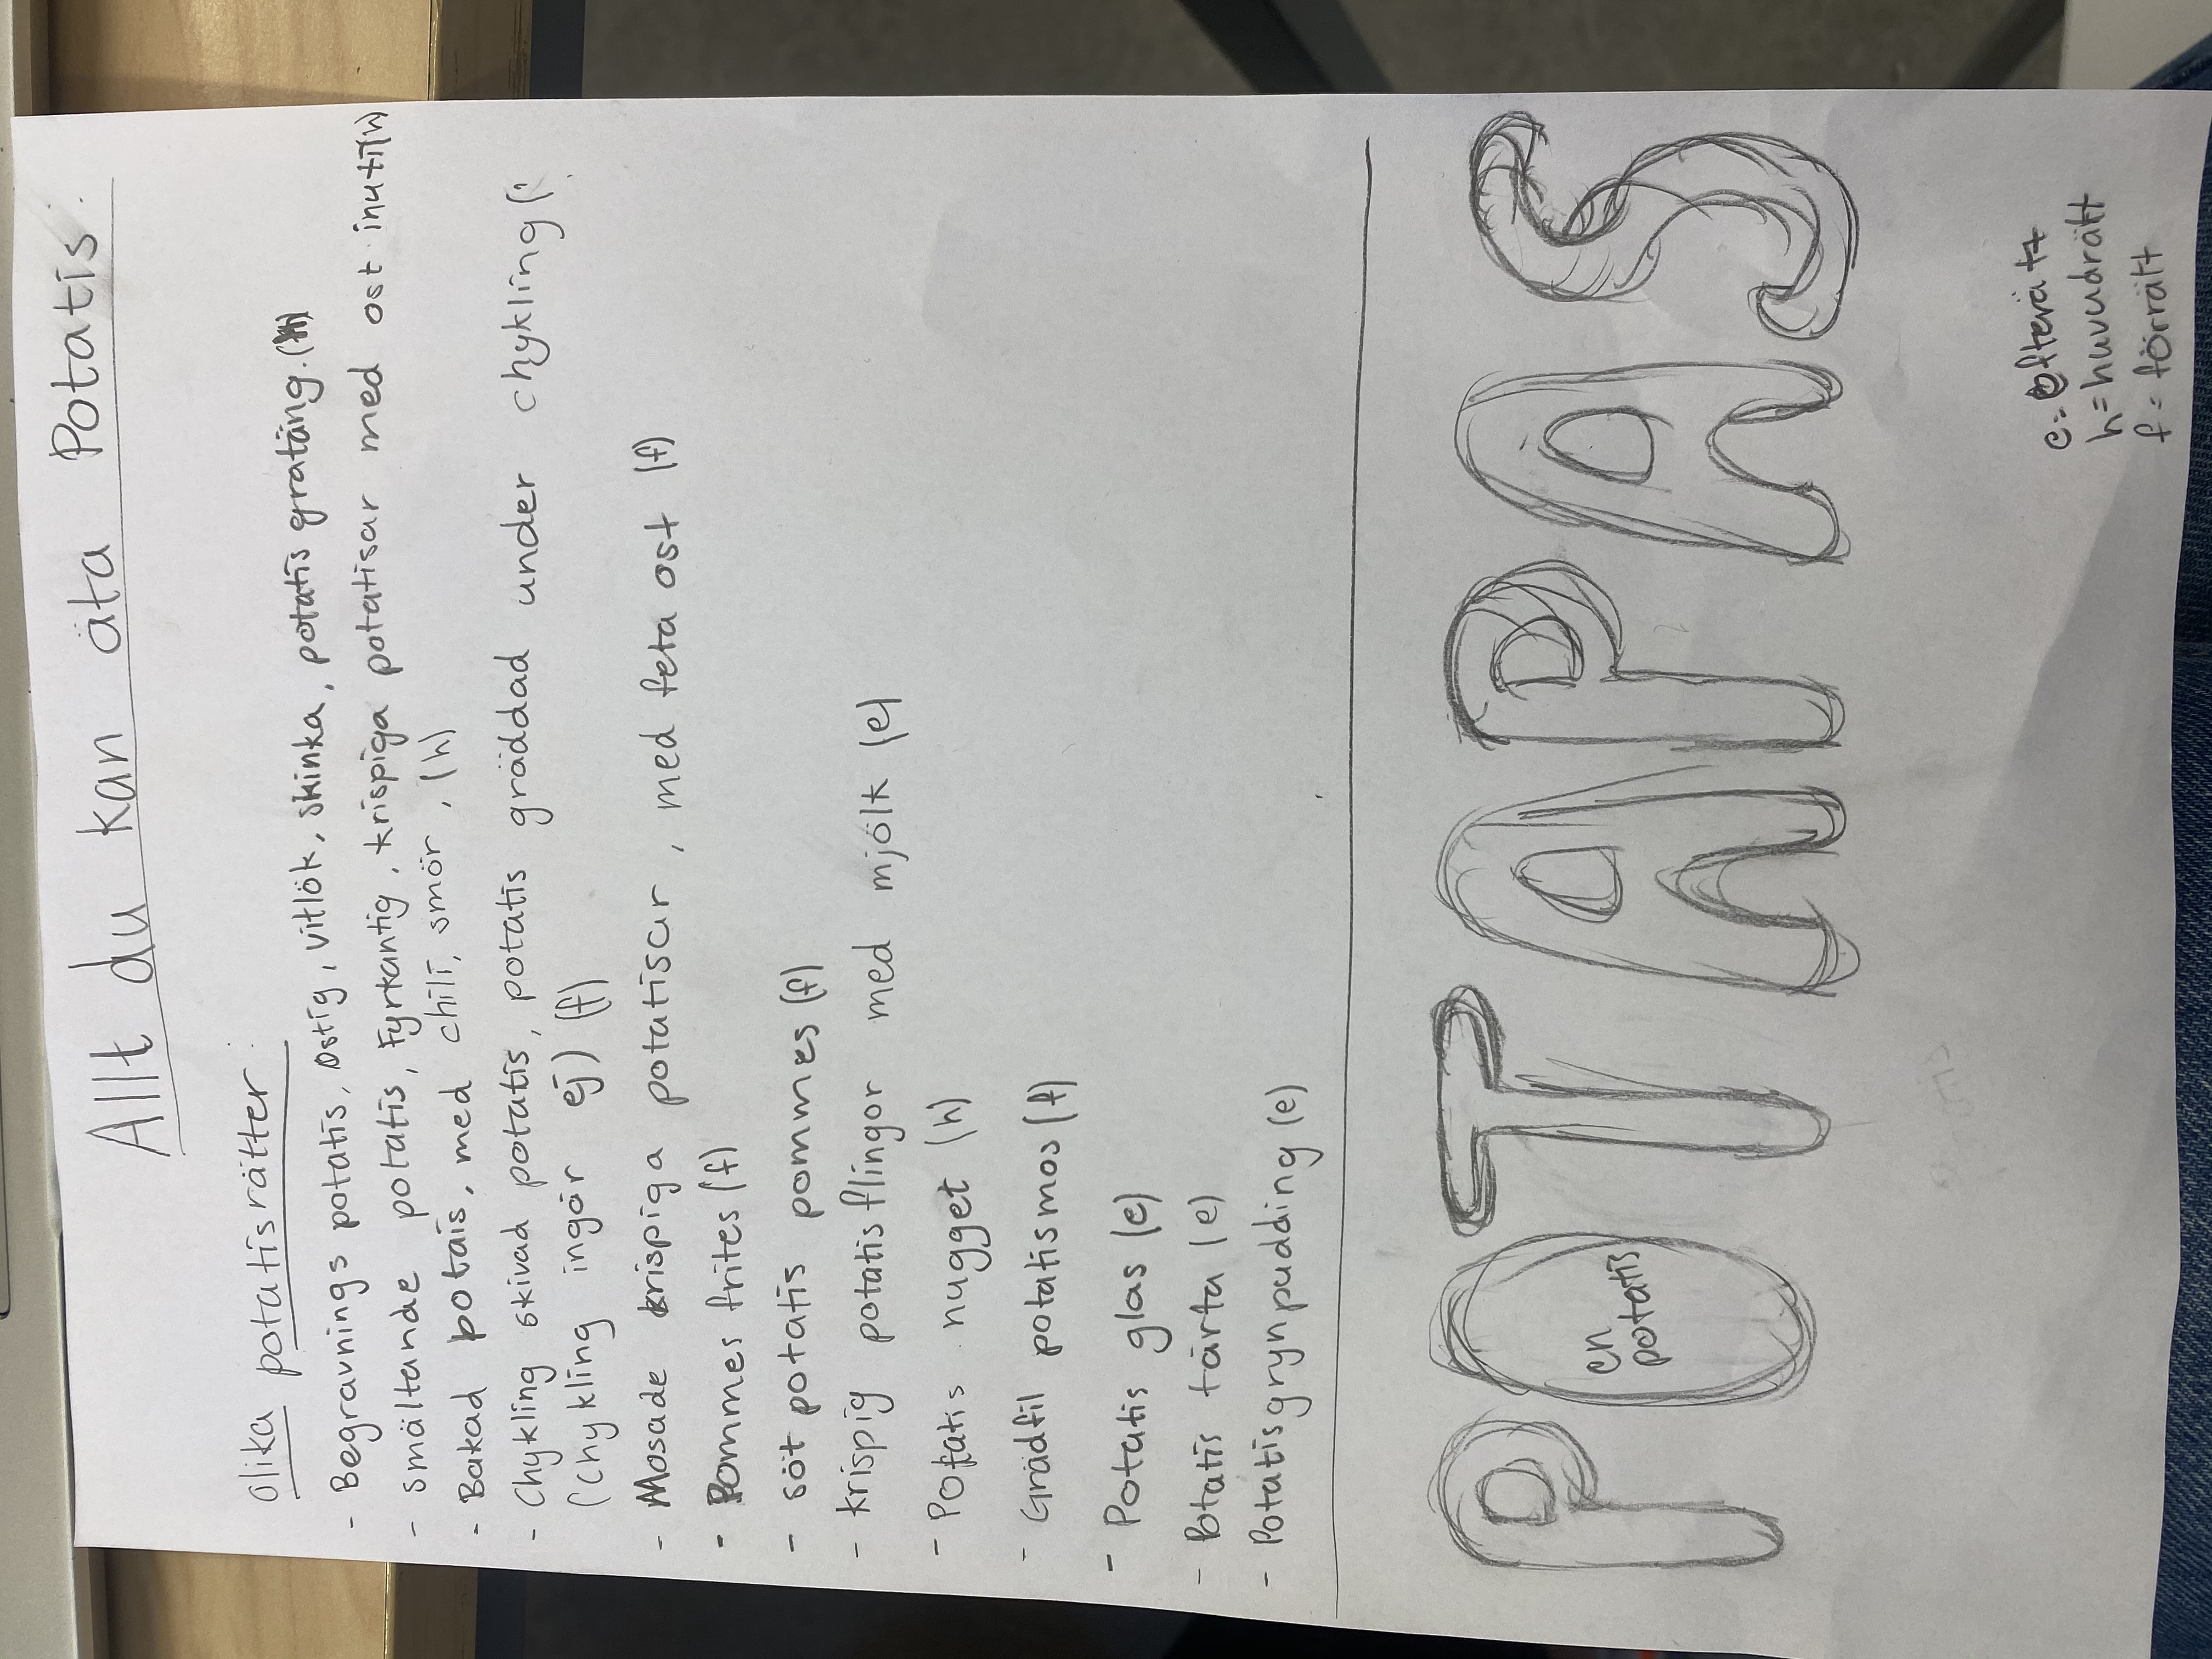 Allt du kan äta Potatis.
olika potatisrätter:
- Begravnings potatis, Ostig, vitlök, skinka, potatis gratäng. (h)
- smältande potatis, Fyrkantig, krispiga potatisar med ost inuti(h)
- Bakad potais, med chili, smör, (h)
- Chykling skivad potatis, potatis gräddad under chykling (
(chykling ingår ej) (f)
- Mosade krispiga potatisar, med feta ost (f)
- Pommes frites (f)
- söt potatis pommes (f)
- krispig potatisflingor med mjölk (e)
- Potatis nugget (h)
- Grädfil potatismos (f)
- Potatis glas (e)
- Potatis tårta (e)
- Potatisgrynpudding (e)
POTAPAS
en
potatis
e= efterätt
h= huvudrätt
f= förrätt